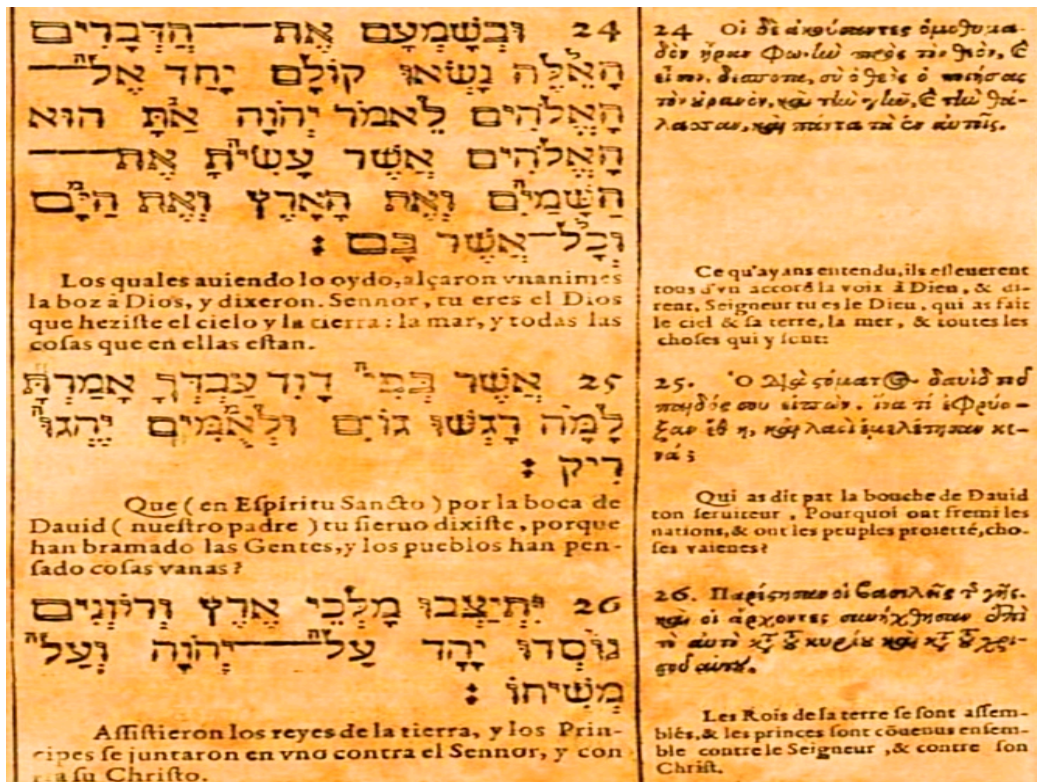 24 וּבְשָׁמְעָם אֶת־הַדְּבָרִים
הָאֵלֶּה נָשְׂאוּ קוֹלָם יָחַד אֶל־
הָאֱלֹהִים לֵאמֹר יְהֹוָה אַתָּ הוּא
הָאֱלֹהִים אֲשֶׁר עָשִׂיתָ אֶת־
הַשָּׁמַיִם וְאֶת הָאָרֶץ וְאֶת הַיָּם
וְכָל־אֲשֶׁר בָּם :
Los quales auiendo lo oydo, alçaron vnanimes
la boz à Dios, y dixeron. Sennor, tu eres el Dios
que heziſte el cielo y la tierra: la mar, y todas las
coſas que en ellas eſtan.
25 אֲשֶׁר בְּפִי דָוִד עַבְדְּךָ אָמַרְתָּ
לָמָּה רָגְשׁוּ גוֹיִם וּלְאֻמִּים יֶהְגּוּ
רִיק :
Que ( en Eſpiritu Sancto ) por la boca de
Dauid ( nueſtro padre ) tu ſieruo dixiſte, porque
han bramado las Gentes, y los pueblos han pen-
ſado coſas vanas?
26 יִתְיַצְּבוּ מַלְכֵי אֶרֶץ וְרוֹזְנִים
נוֹסְדוּ יָחַד עַל־יְהֹוָה וְעַל
מְשִׁיחוֹ :
Aſſiſtieron los reyes de la tierra, y los Prin-
cipes ſe juntaron en vno contra el Sennor, y con
ſu Chriſto.
24 Οἱ δὲ ἀκούσαντες ὁμοθυμα-
δὸν ἦραν φωνὴν πρὸς τὸν θεὸν, &
εἶπον, δέσποτα, σὺ ὁ θεὸς ὁ ποιήσας
τὸν οὐρανὸν, καὶ τὴν γῆν, & τὴν θά-
λασσαν, καὶ πάντα τὰ ἐν αὐτοῖς.
Ce qu'ayans entendu, ils eſleuerent
tous d'vn accord la voix à Dieu, & di-
rent, Seigneur tu es le Dieu, qui as fait
le ciel & la terre, la mer, & toutes les
choſes qui y ſont:
25. Ὁ διὰ στόματος δαυὶδ τοῦ
παιδός σου εἰπὼν, ἵνα τί ἐφρύα-
ξαν ἔθνη, καὶ λαοὶ ἐμελέτησαν κε-
νά;
Qui as dit par la bouche de Dauid
ton ſeruiteur, Pourquoi ont fremi les
nations, & ont les peuples proietté, cho-
ſes vaienes?
26. Παρέςησαν οἱ βασιλεῖς τῆς γῆς.
καὶ οἱ ἄρχοντες συνήχθησαν ἐπὶ
τὸ αὐτὸ κατὰ τοῦ κυρίου καὶ κατὰ τοῦ χρι-
ςοῦ αὐτοῦ.
Les Rois de la terre ſe ſont aſſem-
blés, & les princes ſont cõuenus enſem-
ble contre le Seigneur, & contre ſon
Chriſt.